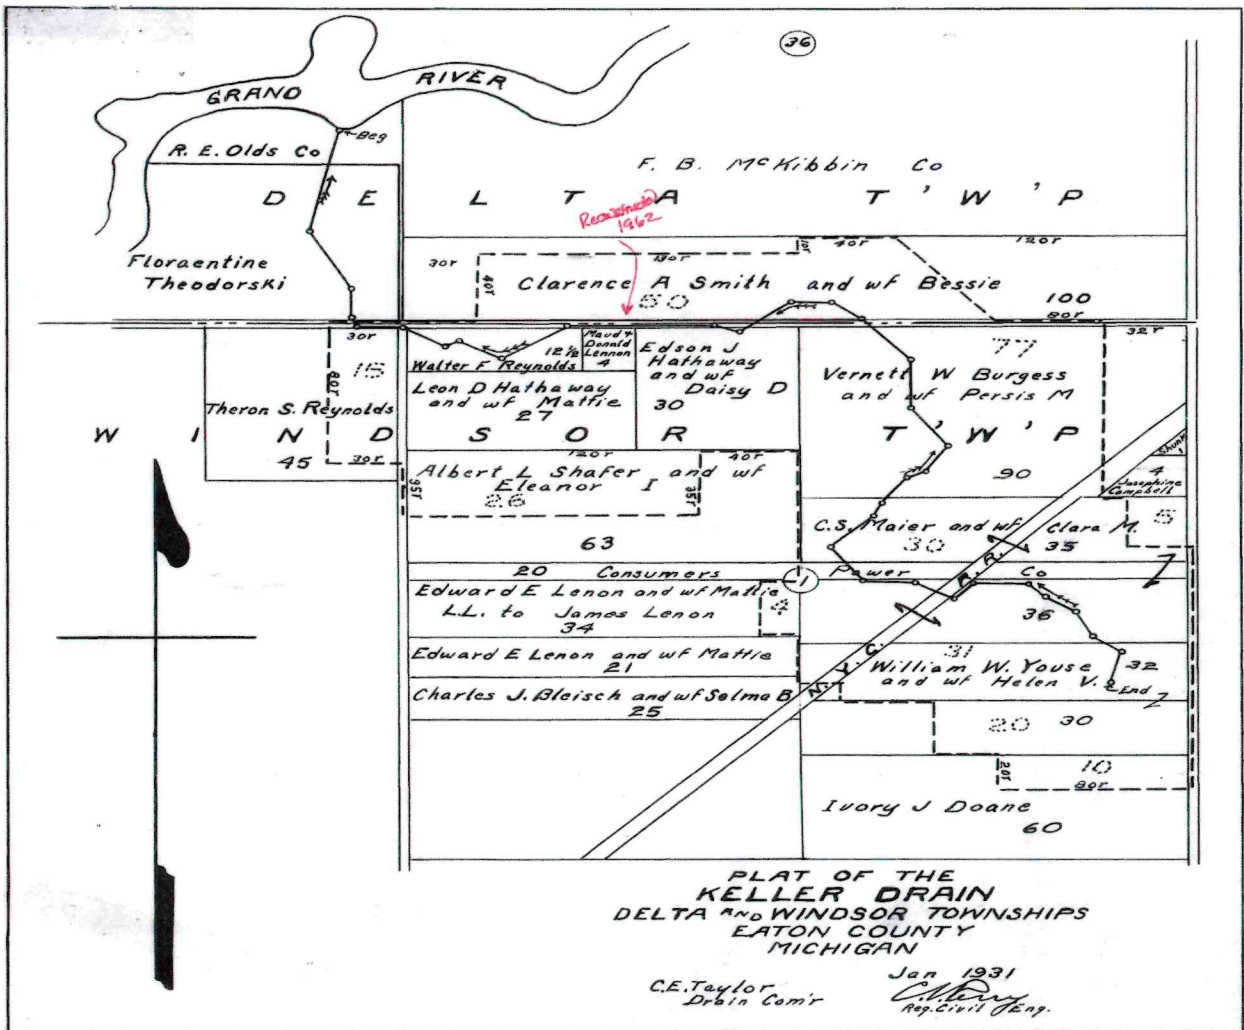 36
GRAND RIVER
Beg
R. E. Olds Co
F. B. McKibbin Co
D E L T A T'W'P
Reconstructed
1962
Floraentine
Theodorski
30r
130r
10r
40r
120r
40r
Clarence A Smith and wf Bessie
50
100
80r
30r
32r
15
80r
Theron S. Reynolds
45
30r
35r
12½
Walter F Reynolds
Maud &
Donald
Lennon
4
Leon D Hathaway
and wf Mattie
27
Edson J
Hathaway
and wf
Daisy D
30
77
Vernett W Burgess
and wf Persis M
90
W I N D S O R T'W'P
Shunk
1
4
Josephine
Campbell
5
120r
40r
Albert L Shafer and wf
Eleanor I
26
35r
63
C.S. Maier and wf Clara M.
30
35
20 Consumers Power Co
1
Edward E Lenon and wf Mattie
L.L. to James Lenon
34
4
36
Edward E Lenon and wf Mattie
21
31
William W. Youse
and wf Helen V.
32
End
Charles J. Bleisch and wf Selma B
25
R. R.
20
30
20r
10
80r
Ivory J Doane
60
PLAT OF THE
KELLER DRAIN
DELTA AND WINDSOR TOWNSHIPS
EATON COUNTY
MICHIGAN
Jan 1931
C.E. Taylor
Drain Com'r
Reg. Civil Eng.